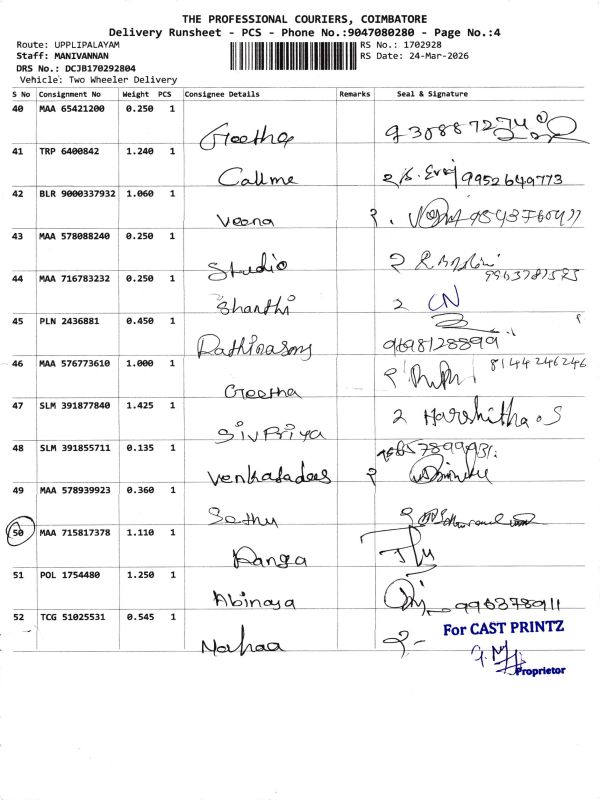 THE PROFESSIONAL COURIERS, COIMBATORE
Delivery Runsheet - PCS - Phone No.:9047080280 - Page No.:4
Route: UPPLIPALAYAM
RS No.: 1702928
Staff: MANIVANNAN
RS Date: 24-Mar-2026
DRS No.: DCJB170292804
Vehicle: Two Wheeler Delivery
S No Consignment No Weight PCS Consignee Details Remarks Seal & Signature
40 MAA 65421200 0.250 1
Geetha
41 TRP 6400842 1.240 1
Callme 9952649773
42 BLR 9000337932 1.060 1
Veena
43 MAA 578088240 0.250 1
Studio
44 MAA 716783232 0.250 1
Shanthi 2 CN
45 PLN 2436881 0.450 1
Rathinasamy 9698128899
46 MAA 576773610 1.000 1 8144246246
Geetha
47 SLM 391877840 1.425 1
SivPriya 2 Harshitha.S
48 SLM 391855711 0.135 1
Venkatadees
49 MAA 578939923 0.360 1
Sethu
50 MAA 715817378 1.110 1
Ranga
51 POL 1754480 1.250 1
Abinaya 996378911
52 TCG 51025531 0.545 1
For CAST PRINTZ
Proprietor